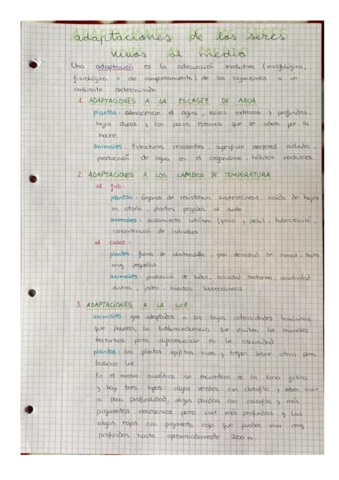 adaptaciones de los seres
vivos al medio
Una adaptación es la adecuación evolutiva (morfológica,
fisiológica o de comportamiento) de los organismos a un
ambiente determinado
1. ADAPTACIONES A LA ESCASEZ DE AGUA
plantas: almacenan el agua, raíces extensas y profundas,
hojas duras y con pocos estomas que se abren por la
noche.
animales: estructuras resistentes, superficie corporal aislada,
producción de agua en el organismo, hábitos nocturnos
2. ADAPTACIONES A LOS CAMBIOS DE TEMPERATURA
al frío:
plantas: órganos de resistencia subterráneos, caída de hojas
en otoño, plantas pegadas al suelo
animales: aislamiento (grasa y pelo), hibernación,
concentración de individuos
al calor:
plantas: forma de almohadilla, gran densidad de ramas, hojas
muy pequeñas
animales: producción de sudor, actividad nocturna, inactividad
diurna, jadeo, hábitos subterráneos
3. ADAPTACIONES A LA LUZ
animales: ojos adaptados a las bajas intensidades luminosas
que poseen, la bioluminiscencia que emiten los animales
nocturnos para diferenciarse en la oscuridad
plantas: las plantas epífitas viven y trepan sobre otras para
buscar luz.
En el medio acuático se encuentran en la zona fótica
y hay tres tipos: algas verdes con clorofila y deben vivir
a poca profundidad, algas pardas con clorofila y más
pigmentos necesarios para vivir más profundas y las
algas rojas con pigmento rojo que pueden vivir muy
profundas hasta aproximadamente 200 m.